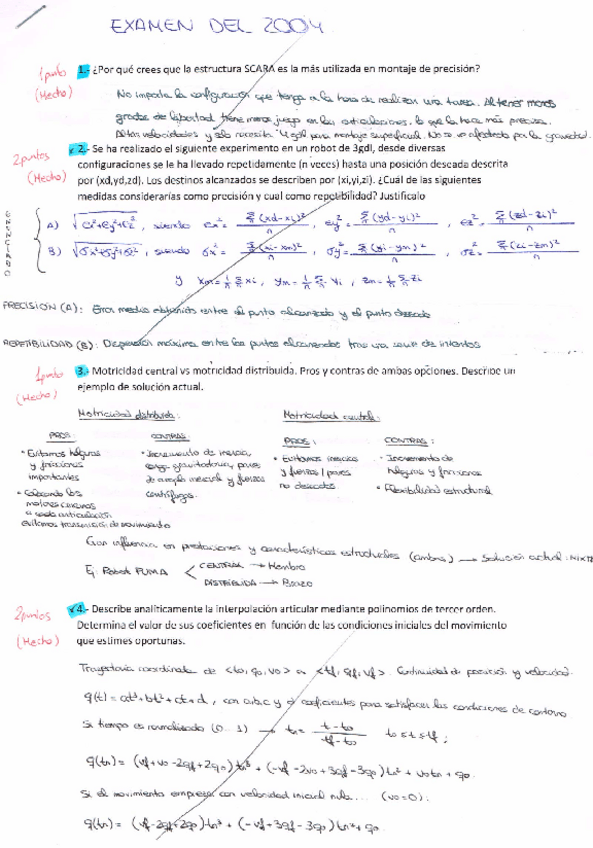 EXAMEN DEL 2004
1 punto (Hecho)
1.- ¿Por qué crees que la estructura SCARA es la más utilizada en montaje de precisión?
No importa la configuración que tenga a la hora de realizar una tarea. Al tener menos
grados de libertad tiene menos juego en las articulaciones, lo que la hace más precisa.
Altas velocidades y sólo necesita 4 gdl para montaje superficial. No se ve afectado por la gravedad.
2 puntos (Hecho)
2.- Se ha realizado el siguiente experimento en un robot de 3gdl, desde diversas
configuraciones se le ha llevado repetidamente (n veces) hasta una posición deseada descrita
por (xd,yd,zd). Los destinos alcanzados se describen por (xi,yi,zi). ¿Cuál de las siguientes
medidas considerarías como precisión y cual como repetibilidad? Justificalo
ENUNCIADO
A) √ex²+ey²+ez², siendo ex² = Σ(xd-xi)²/n, ey² = Σ(yd-yi)²/n, ez² = Σ(zd-zi)²/n
B) √σx²+σy²+σz², siendo σx² = Σ(xi-xm)²/n, σy² = Σ(yi-ym)²/n, σz² = Σ(zi-zm)²/n
y xm = 1/n Σ xi, ym = 1/n Σ yi, zm = 1/n Σ zi
PRECISIÓN (A): Error medio obtenido entre el punto alcanzado y el punto deseado
REPETIBILIDAD (B): Dispersión máxima entre los puntos alcanzados tras una serie de intentos
1 punto (Hecho)
3.- Motricidad central vs motricidad distribuida. Pros y contras de ambas opciones. Describe un
ejemplo de solución actual.
Motricidad distribuida: Motricidad central:
PROS: CONTRAS: PROS: CONTRAS:
• Evitamos holguras y fricciones importantes
• Colocando los motores cercanos a cada articulación evitamos transmisión de movimiento
• Incremento de inercia, carga gravitatoria, pares de acople inercial y fuerzas centrífugas.
• Evitamos inercias y fuerzas / pares no deseados
• Incremento de holguras y fricciones
• Flexibilidad estructural
Gran influencia en prestaciones y características estructurales (ambas) → Solución actual: MIXTA
Ej Robot PUMA < CENTRAL → Hombro
DISTRIBUIDA → Brazo
2 puntos (Hecho)
4.- Describe analíticamente la interpolación articular mediante polinomios de tercer orden.
Determina el valor de sus coeficientes en función de las condiciones iniciales del movimiento
que estimes oportunas.
Trayectoria coordinada de <to, qo, vo> a <tf, qf, vf>. Continuidad de posición y velocidad.
q(t) = at³+bt²+ct+d, con a,b,c y d coeficientes para satisfacer las condiciones de contorno
Si tiempo es normalizado (0...1) → tn = t - to / tf - to to ≤ t ≤ tf;
q(tn) = (vf+vo-2qf+2qo)tn³ + (-vf-2vo+3qf-3qo)tn² + votn + qo.
Si el movimiento empieza con velocidad inicial nula... (vo=0):
q(tn) = (vf-2qf+2qo)tn³ + (-vf+3qf-3qo)tn²+qo